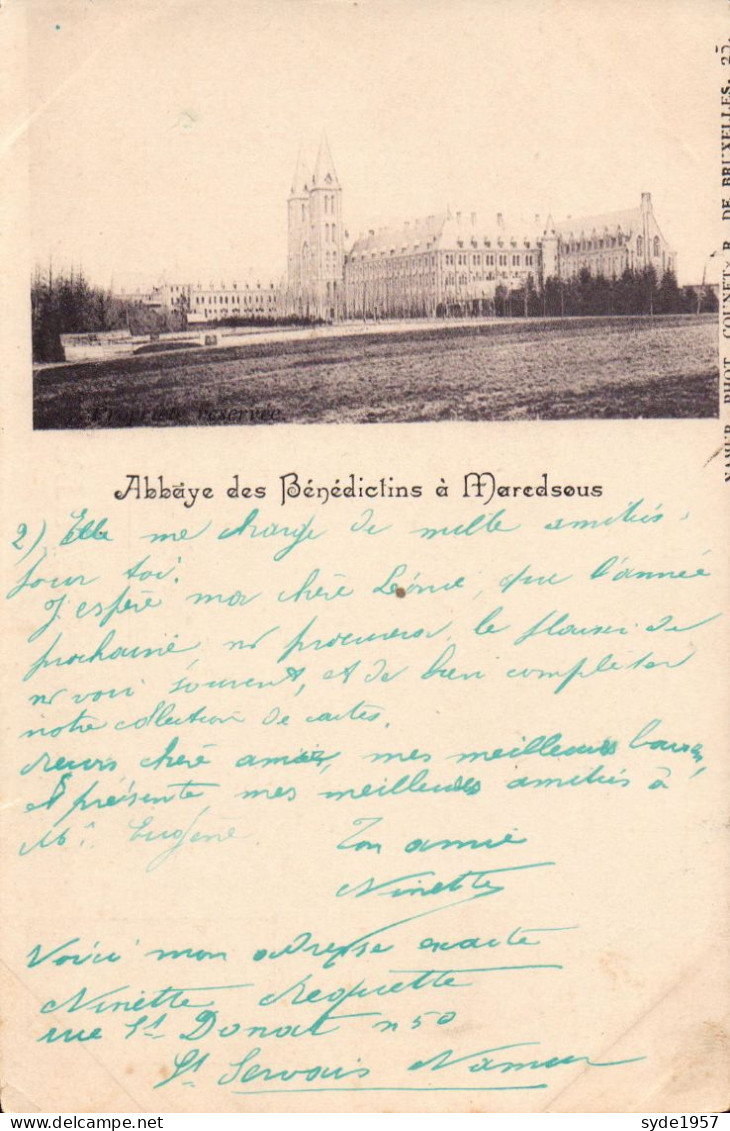 Propriété réservée
NAMUR PHOT. COUNET R. DE BRUXELLES. 25.
Abbaye des Bénédictins à Maredsous
2) Elle me charge de mille amitiés
pour toi.
J'espère ma chère Léonie, que l'année
prochaine procurera le plaisir de
voir souvent, et de bien compléter
notre collection de cartes.
Reçois chère amie, mes meilleurs baisers,
et présente mes meilleures amitiés à
Mr. Eugène
Ton amie
Ninette
Voici mon adresse exacte
Ninette Requette
rue St Donat n 50
St Servais Namur
delcampe.net
syde1957